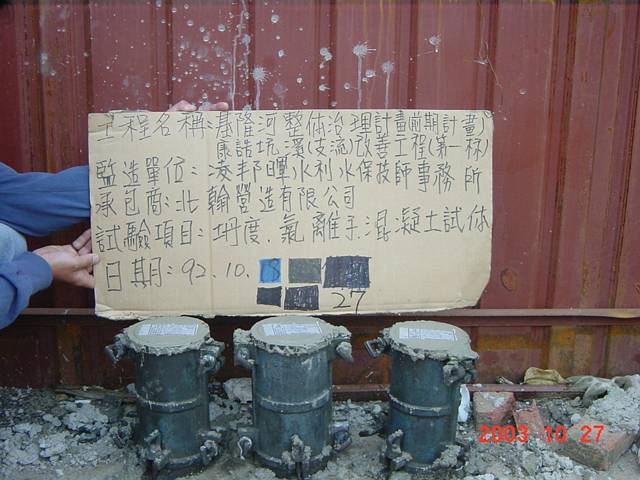 工程名稱:基隆河整体治理計畫(前期計畫)
康誥坑溪(支流)改善工程(第一标)
監造單位:凌邦暉水利水保技師事務所
承包商:北翰營造有限公司
試驗項目:坍度.氯離子.混凝土試体
日期:92.10.
27
2003 10 27